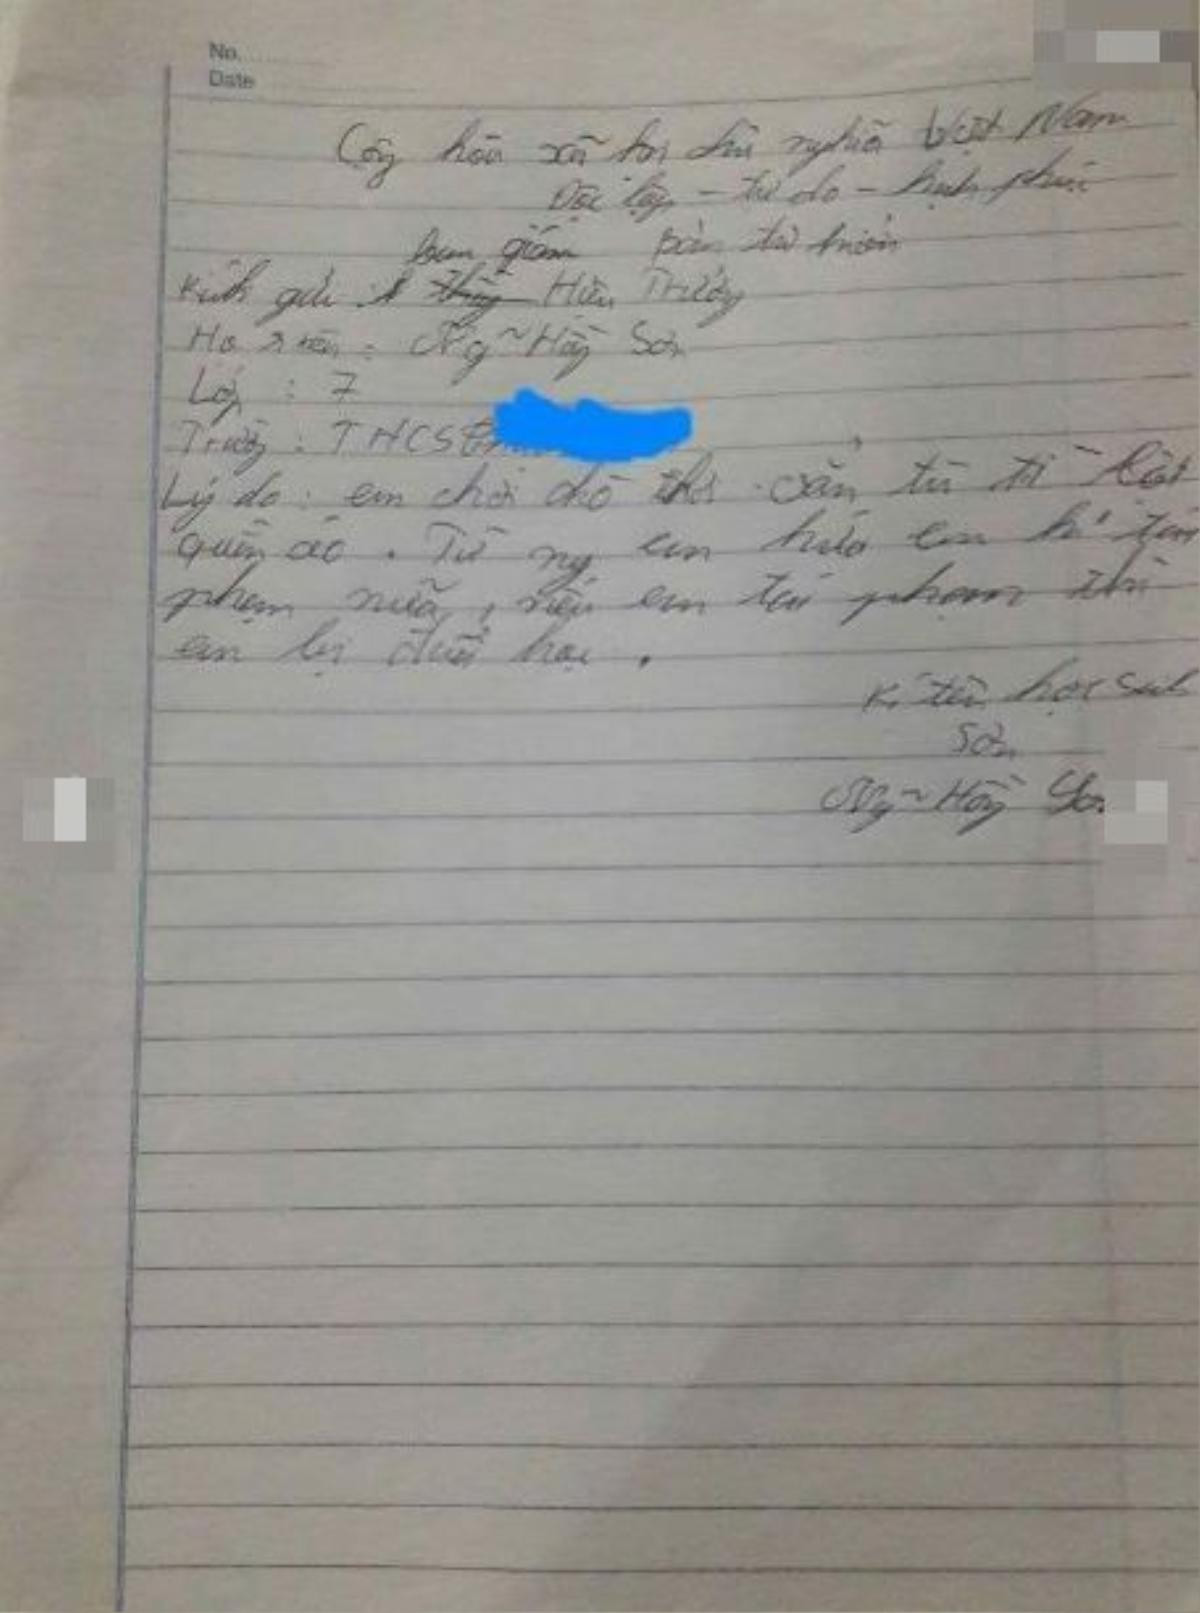 No.
Date
Cộng hòa xã hội chủ nghĩa Việt Nam
Độc lập - tự do - hạnh phúc
Bản tự kiểm
Kính gửi Hiệu Trưởng
Họ tên : Ng~ Hồng Sơn
Lớp : 7
Trường : THCS
Lý do : em chơi chó thả cắn từ từ
quần áo . Từ ny em hứa em tái
phạm nữa, nếu em tái phạm thì
em bị đuổi học .
Kí tên học sinh
Sơn
Ng~ Hồng Sơn